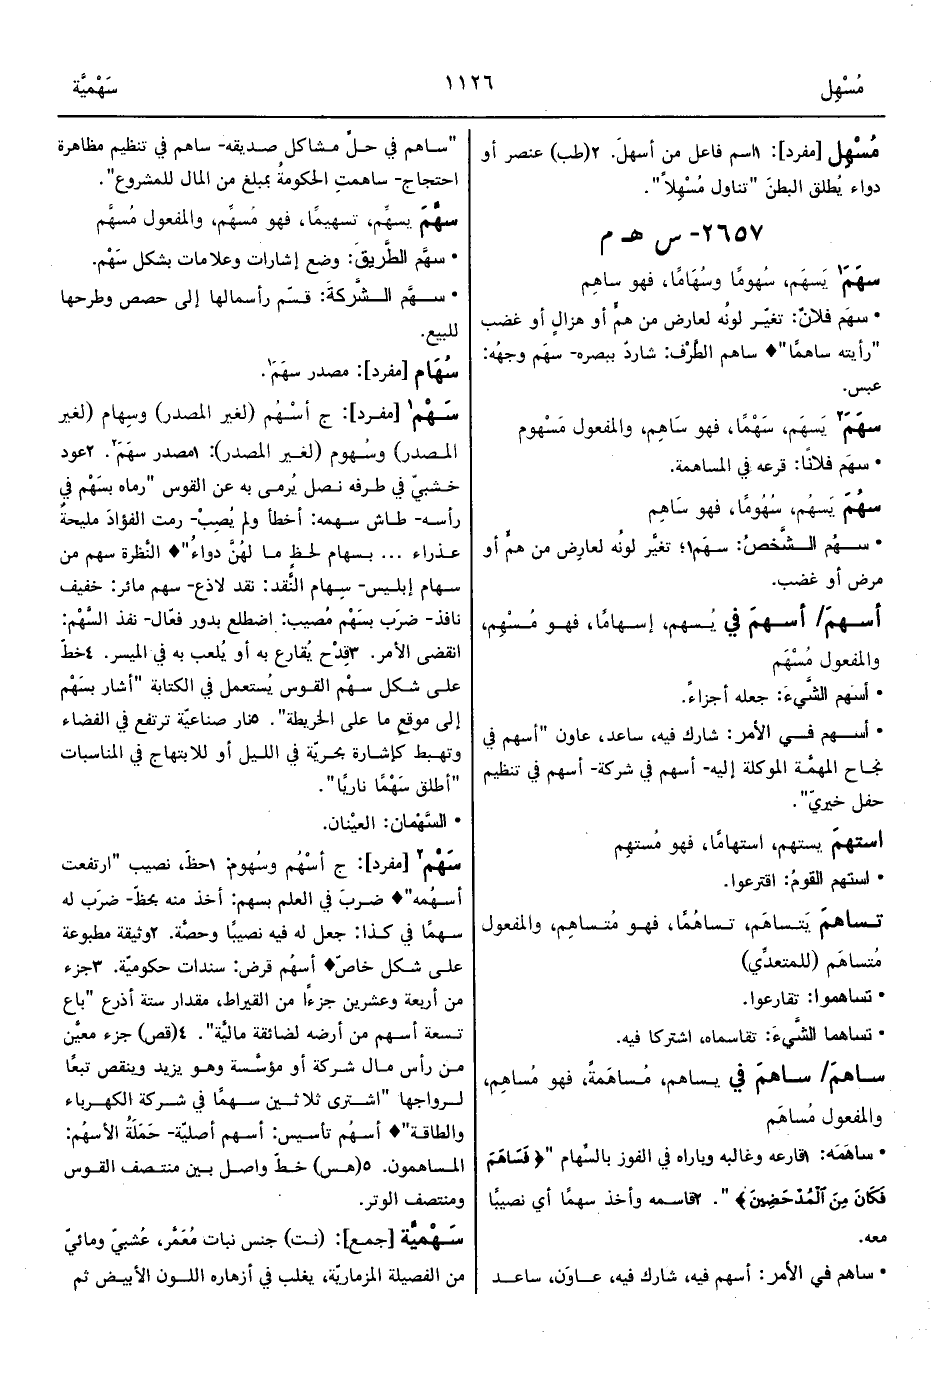 مُسْهِل
١١٢٦
سَهْميَّة
مُسْهِل [مفرد]: ١اسم فاعل من أسهلَ. ٢(طب) عنصر أو
دواء يُطلق البطنَ "تناول مُسْهِلاً".
٢٦٥٧- س هـ م
سهَمَ١ يَسهَم، سُهومًا وسُهَامًا، فهو ساهِم
• سهَم فلانٌ: تغيّر لونُه لعارض من همٍّ أو هزالٍ أو غضب
"رأيته ساهمًا"♦ ساهم الطَّرْف: شاردٌ ببصره- سهَم وجهُه:
عبس.
سهَمَ٢ يَسهَم، سَهْمًا، فهو سَاهِم، والمفعول مَسْهوم
• سهَم فلانًا: قرعه في المساهمة.
سهُمَ يَسهُم، سُهُومًا، فهو سَاهِم
• سـهُم الـشَّخصُ: سهَم١؛ تغيَّر لونُه لعارِض من همٍّ أو
مرض أو غضب.
أسـهمَ/ أسـهمَ في يُـسهم، إسـهامًا، فهـو مُـسْهِم،
والمفعول مُسْهَم
• أسْهَم الشَّيءَ: جعله أجزاءً.
• أسـهم فـي الأمر: شارك فيه، ساعد، عاون "أسهم في
نجاح المهمَّة الموكلة إليه- أسهم في شركة- أسهم في تنظيم
حفل خيريّ".
استهمَ يستهم، استهامًا، فهو مُستهِم
• استهم القومُ: اقترعوا.
تـساهمَ يَتـساهَم، تـساهُمًا، فهـو مُتـساهِم، والمفعول
مُتساهَم (للمتعدِّي)
• تساهموا: تقارعوا.
• تساهما الشَّيءَ: تقاسماه، اشتركا فيه.
سـاهمَ/ سـاهمَ في يـساهم، مُـساهَمةً، فهو مُساهِم،
والمفعول مُساهَم
• ساهَمَه: ١قارعه وغالبه وباراه في الفوز بالسِّهام "﴿ فَسَاهَمَ
فَكَانَ مِنَ الْمُدْحَضِينَ ﴾". ٢قاسمه وأخذ سهمًا أي نصيبًا
معه.
• ساهم في الأمر: أسهم فيه، شارك فيه، عـاوَن، ساعـد
"سـاهم في حـلّ مـشاكل صديقه- ساهم في تنظيم مظاهرة
احتجاج- ساهمتِ الحكومةُ بمبلغ من المال للمشروع".
سهَّمَ يسهِّم، تسهيمًا، فهو مُسهِّم، والمفعول مُسهَّم
• سهَّم الطَّريقَ: وضع إشارات وعلامات بشكل سَهْم.
• سـهَّم الـشَّركةَ: قـسّم رأسمالها إلى حصص وطرحها
للبيع.
سُهَام [مفرد]: مصدر سهَمَ١.
سَـهْم١ [مفـرد]: ج أسْـهُم (لغير المصدر) وسِهام (لغير
المـصدر) وسُـهوم (لغـير المصدر): ١مصدر سهَمَ٢. ٢عود
خـشبيّ في طرفه نـصل يُرمـى به عن القوس "رماه بسَهْم في
رأسه- طـاش سـهمه: أخطأ ولم يُصِبْ- رمت الفؤادَ مليحةٌ
عـذراء ... بـسهام لحـظٍ مـا لهُنَّ دواءُ"♦ النَّظرة سهم من
سـهام إبلـيس- سِهام النَّقد: نقد لاذع- سهم مائر: خفيف
نافذ- ضرَب بسَهْم مُصيب: اضطلع بدور فعّال- نفذ السَّهْم:
انقضى الأمر. ٣قِدْح يُقارع به أو يُلعب به في الميسر. ٤خطّ
علـى شـكل سهْم القوس يُستعمل في الكتابة "أشار بسَهْم
إلى موقعٍ ما على الخريطة". ٥نار صناعيّة ترتفع في الفضاء
وتهبط كإشارة بحَريّة في الليل أو للابتهاج في المناسبات
"أطلق سَهْمًا ناريًّا".
• السَّهْمان: العيْنان.
سَهْم٢ [مفرد]: ج أسْهُم وسُهوم: ١حظّ، نصيب "ارتفعت
أسـهُمه"♦ ضـربَ في العلم بسهم: أخذ منه بحَظّ- ضرَب له
سـهمًا في كـذا: جعل له فيه نصيبًا وحصَّة. ٢وثيقة مطبوعة
علـى شـكل خاصّ♦ أسهُم قرض: سندات حكوميّة. ٣جزء
من أربعة وعشرين جزءًا من القيراط، مقدار ستة أذرع "باع
تـسعة أسـهم من أرضه لضائقة ماليَّة". ٤(قص) جزء معيَّن
مـن رأس مـال شركة أو مؤسَّسة وهـو يزيد وينقص تبعًا
لـرواجها "اشـترى ثلاثـين سـهمًا في شـركة الكهـرباء
والطاقة"♦ أسـهُم تأسيس: أسهم أصليّة- حَمَلَةُ الأسهُم:
المـساهمون. ٥(هـس) خـطّ واصـل بـين منتـصف القـوس
ومنتصف الوتر.
سَـهْميَّة [جمع]: (نـت) جنس نبات مُعَمَّر، عُشبيّ ومائيّ
من الفصيلة المزماريّة، يغلب في أزهاره اللـون الأبيـض ثم